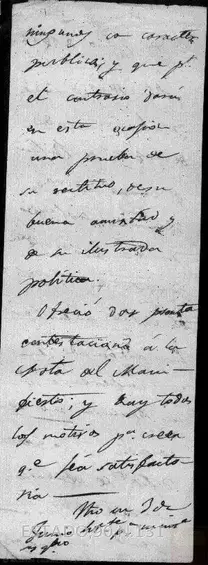 ningunas su caracter
publica; y que pr.
el contrario dará
en esta ocasion
una prueba de
su rectitud, de su
buena amistad y
de su ilustrada
politica.
Ofreció dar pronta
contestacion á la
Nota del Mani-
fiesto; y hay todos
los motivos pa. creer
qe. será satisfacto-
ria —